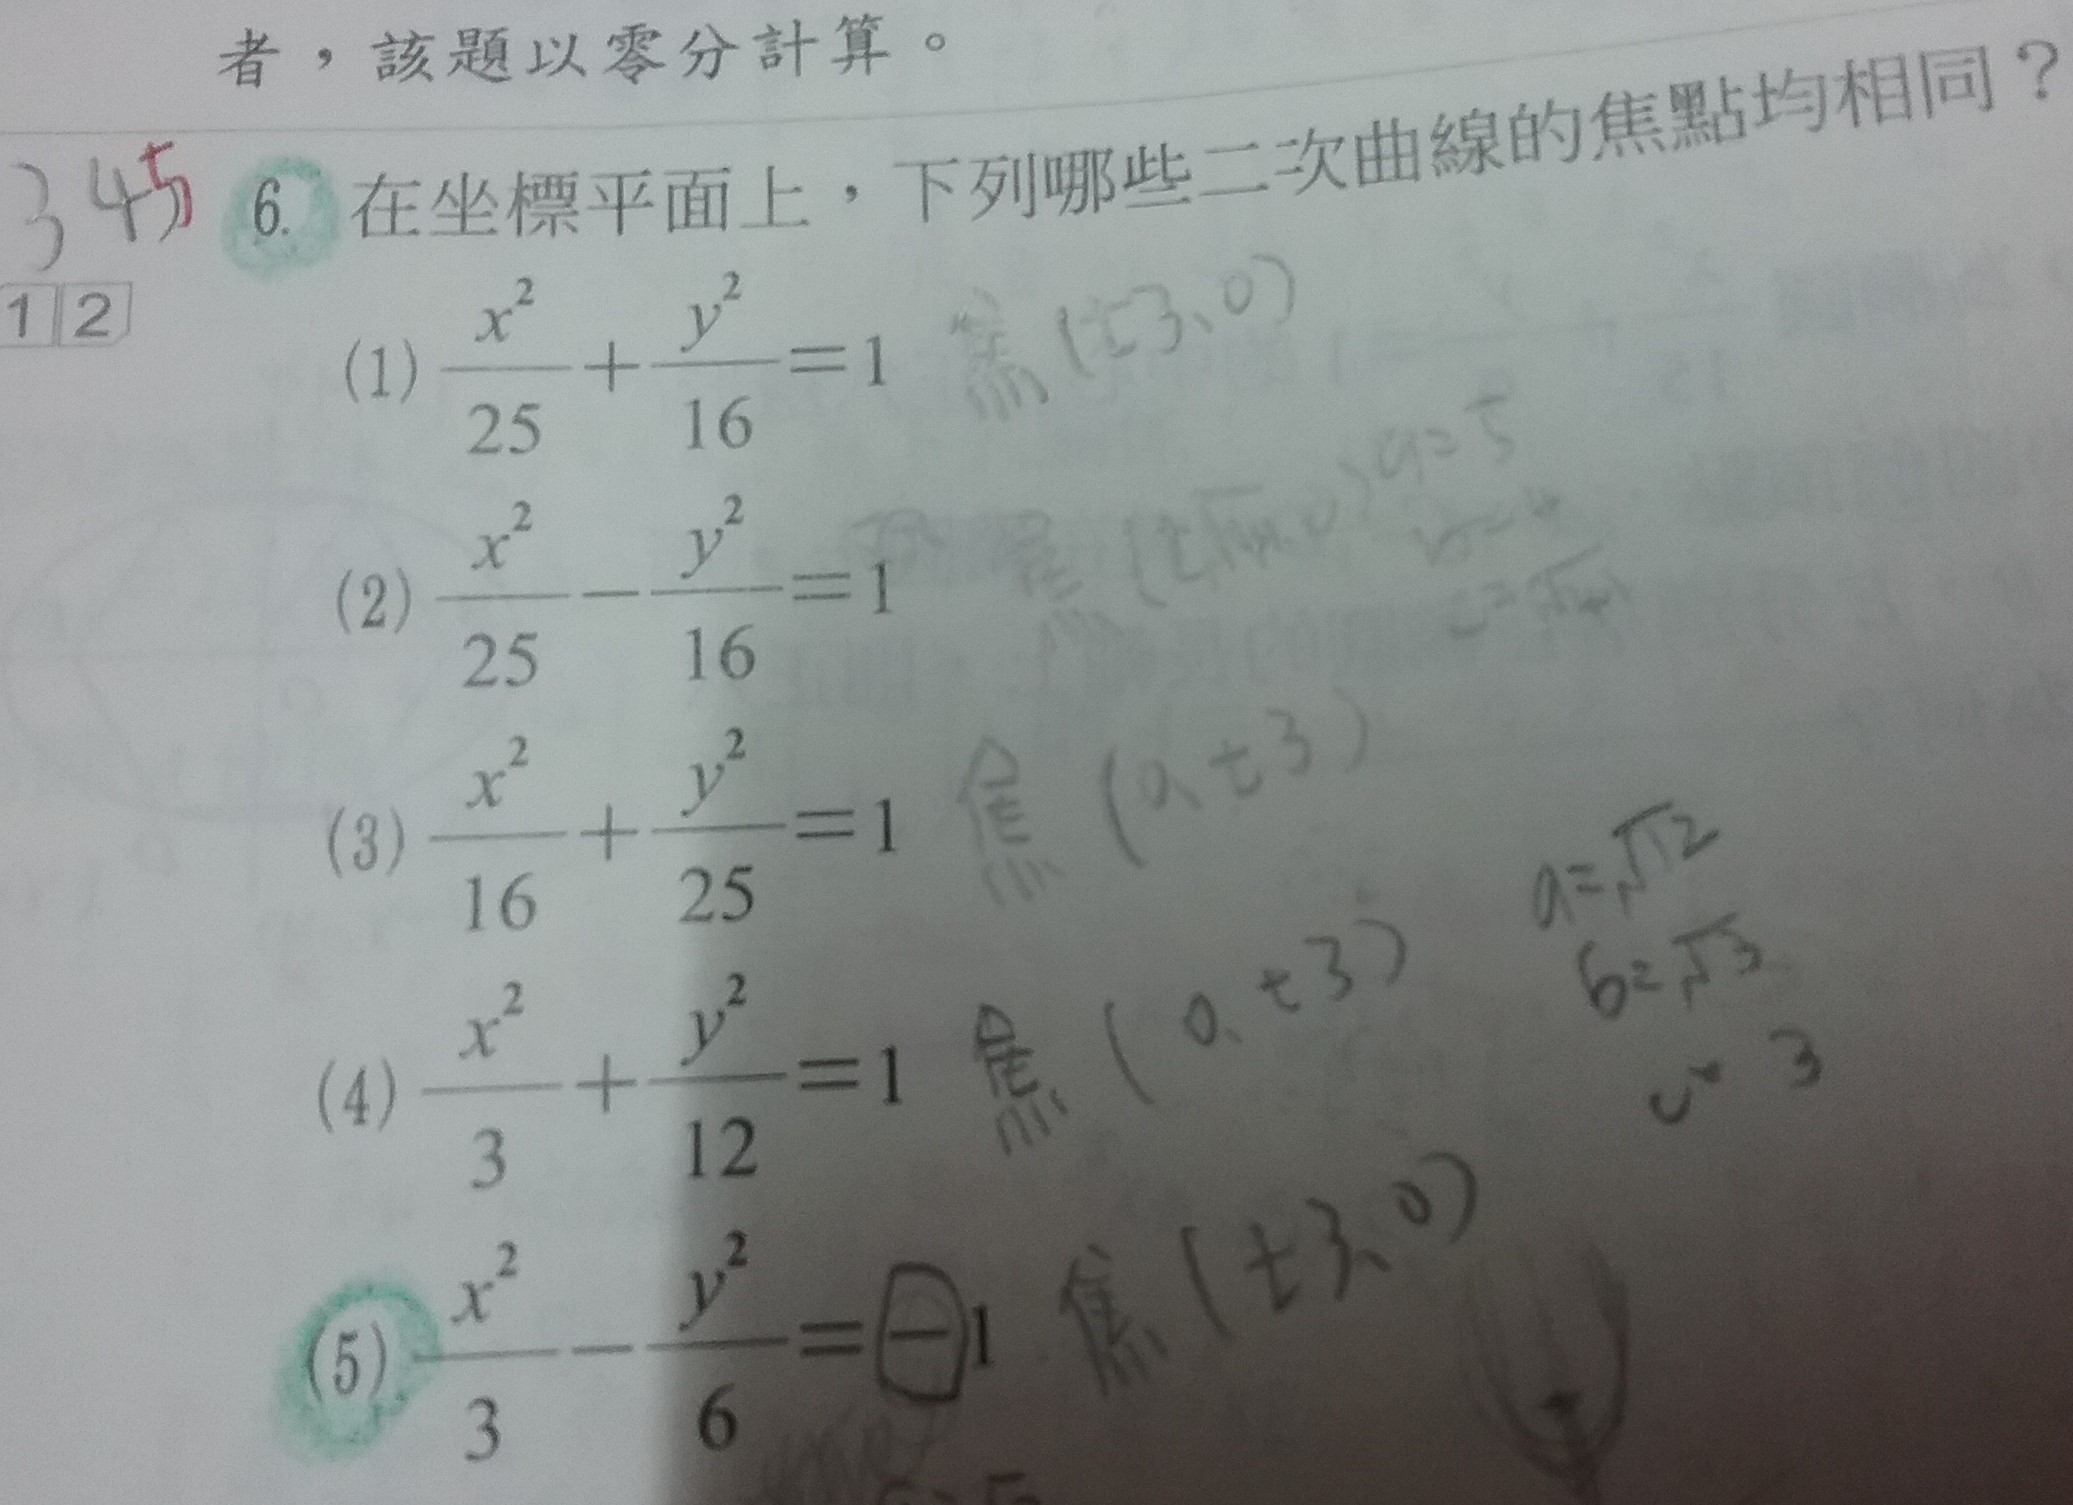 者，該題以零分計算。
345 6. 在坐標平面上，下列哪些二次曲線的焦點均相同？
12
(1) x²/25 + y²/16 = 1 焦(±3、0)
(2) x²/25 − y²/16 = 1 焦(±√41、0) a=5
b=4
c=√41
(3) x²/16 + y²/25 = 1 焦(0、±3)
(4) x²/3 + y²/12 = 1 焦(0、±3) a=√12
b=√3
c=3
(5) x²/3 − y²/6 = −1 焦(±3、0)